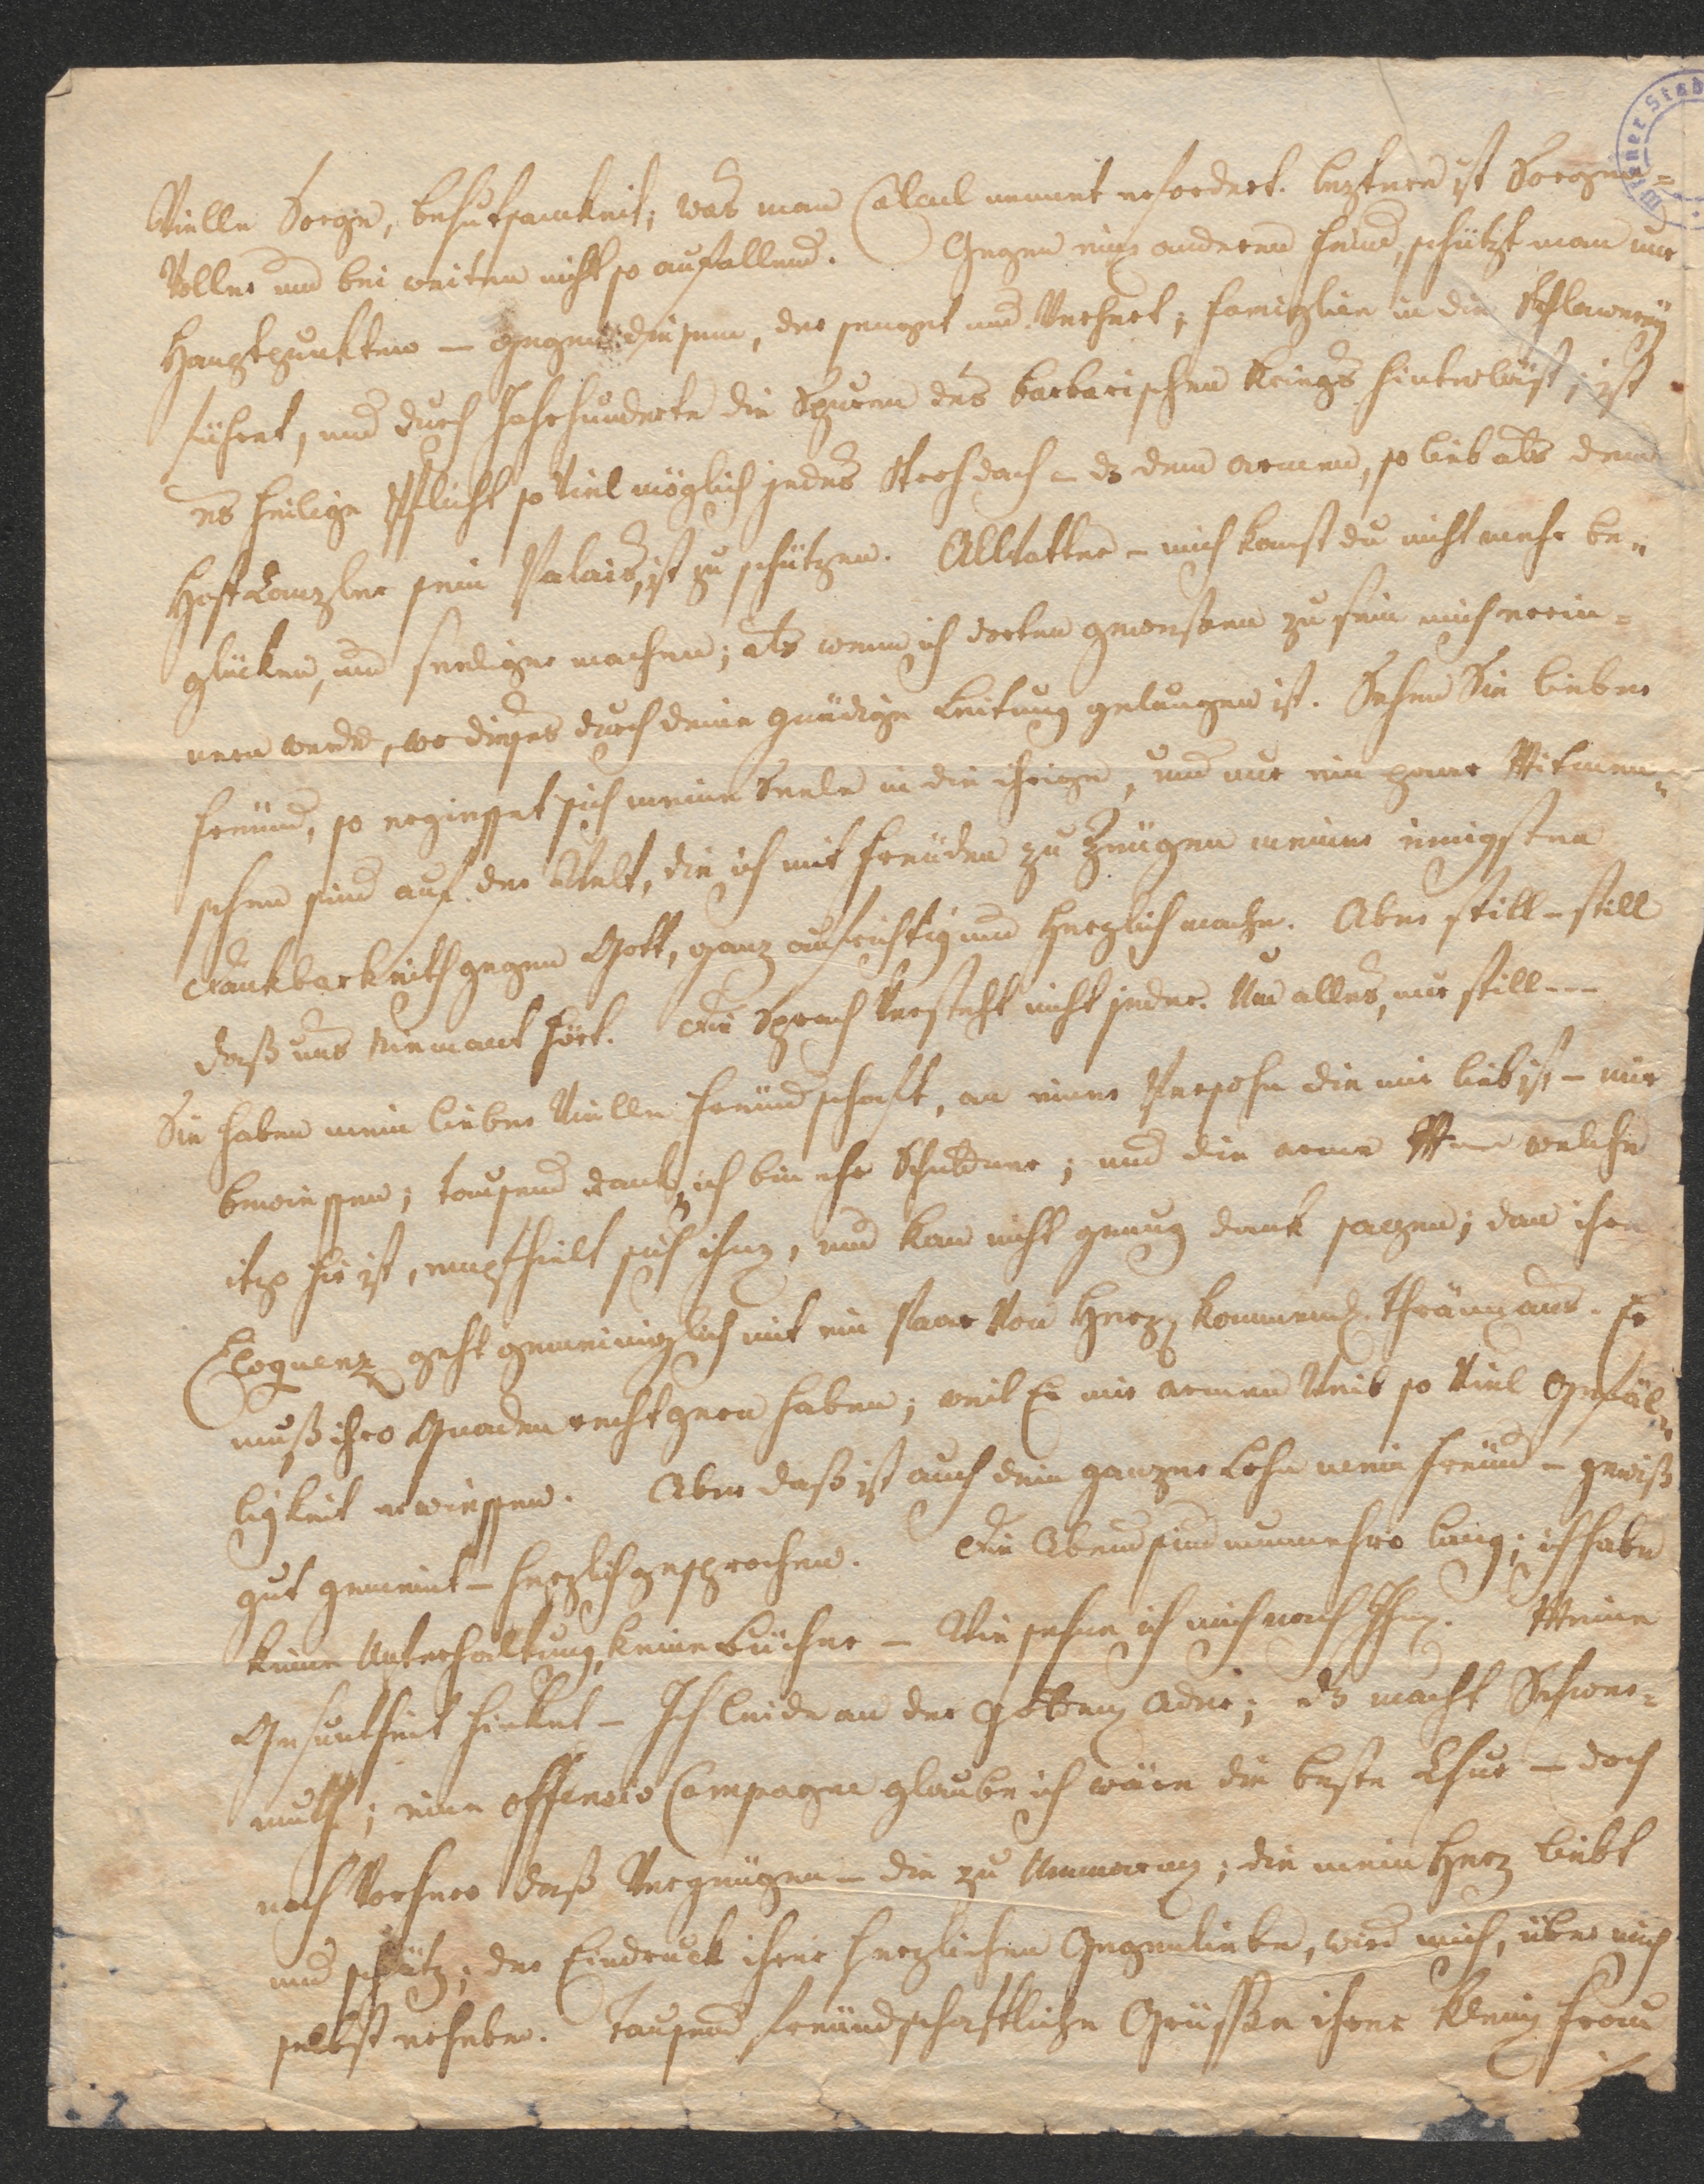 Vielle Sorge, behutsamkeit; was man Calcul nennet erfordert. leztere ist Sorgen=
Voller und bei weiten nicht so aufallend. Gegen einen anderen feind, schützt man nur
Hauptpunkten — gegen diesem, der senget und Verhert; familien in die Schlawerey
führet, und durch Jahrhunderte die Spuren des barbarischen Kriegs hinterläst; ist
es heilige Pflicht so Viel möglich jedes Strohdach - dz dem armen, so lieb als dem
Hofkanzler sein Palais, ist zu schützen. Allvatter - mich kanst du nicht mehr be=
glücken, und seeliger machen; als wenn ich dorten gewessen zu sein mich erin=
nern werde, wo dieses durch deine gnädige Leitung gelungen ist. Sehen Sie lieber
freünd, so ergiesset sich meine Seele in die ihrige, und nur ein paar Mitmen=
schen sind auf der Welt, die ich mit freüden zu Zeügen meiner innigsten
dankbarkeith gegen Gott, ganz aufrichtig und Herzlich mache. Aber still - still
daß uns niemant hört. die Sprach Versteht nicht jeder. Um alles, nur still ---
Sie haben mein lieber Vielle freündschaft, an einer Persohn die mir lieb ist - mir
bewiessen; tausend dank, ich bin ihr Schuldner; und die arme welche
itzo hir ist, empfhielt sich ihnen, und kan nicht genug dank sagen; dan ihre
Eloquenz geht gemeiniglich mit ein Paar Von Herzen kommende Thränen aus. Er
muß ihro Gnaden recht gern haben; weil Er mir armen Weib so Viel Gefäl=
ligkeit erwiessen. Aber daß ist auch dein ganzer Lohn mein freünd - gewiß
gut gemeint - herzlich gesprochen. die Abend sind nunmehro lang; ich habe
keine Unterhaltung, keine Bücher — Wie sehne ich mich nach Ihnen. Meine
Gesuntheit hinket - Ich leide an der goldenen Ader; dz macht Schwer=
muth; eine offensiv Campagne glaube ich wäre die beste Chur — doch
noch Vorhero daß Vergnügen - die zu Umarmen; die mein Herz liebt
und schätz; der Eindruck ihrer herzlichen Gegenliebe, wird mich, über mich
selbst erheben. Tausend freündschaftliche Grüsse ihrer kleinen frau